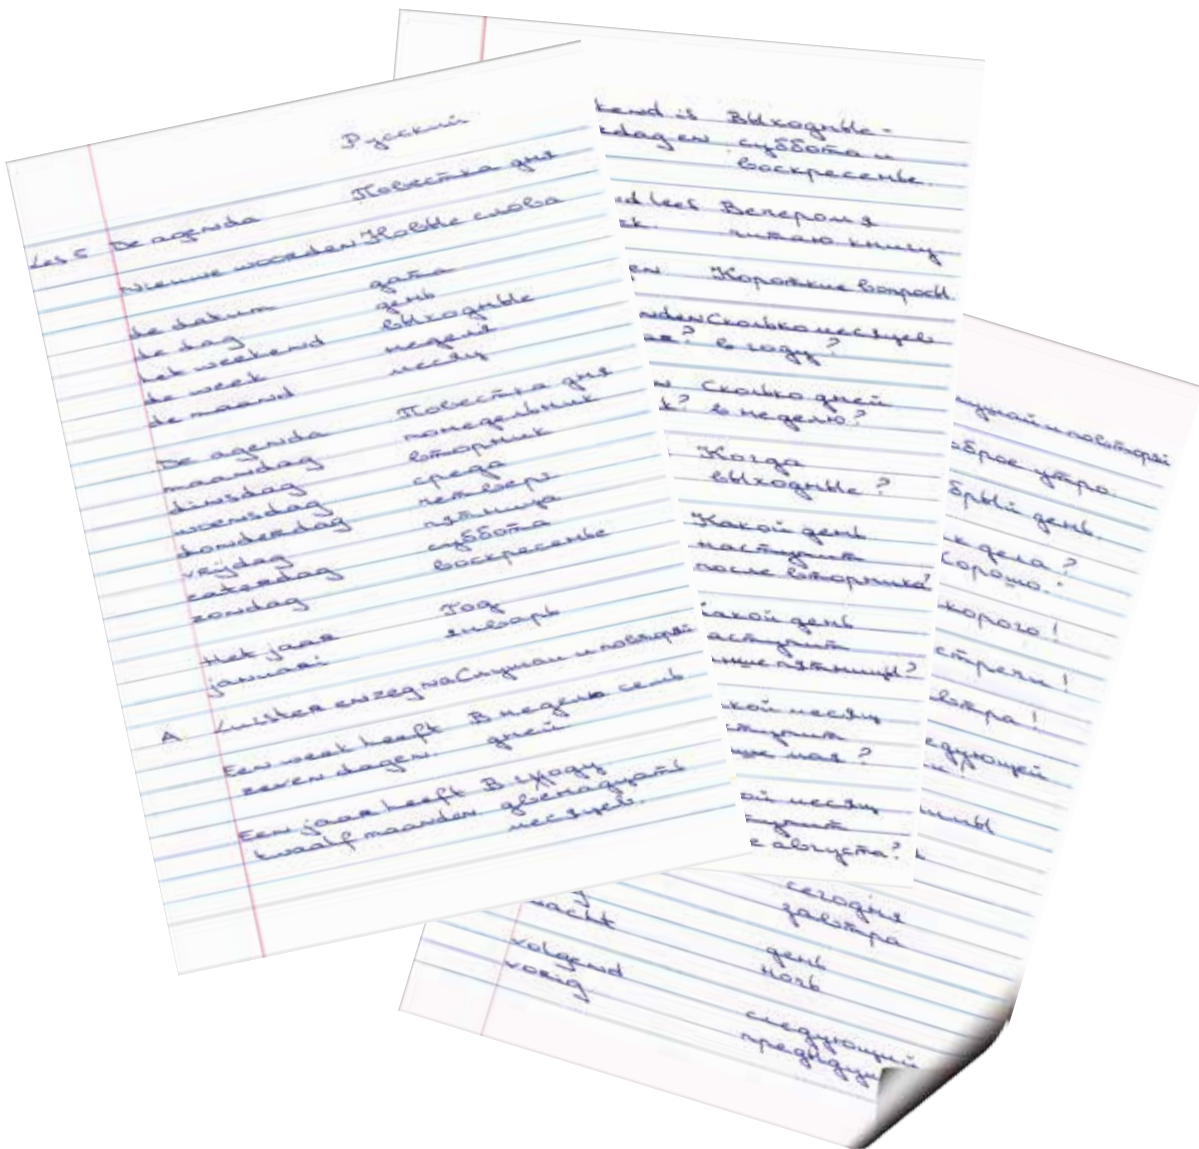 Русский
Les 5 De agenda Повестка дня
Nieuwe woorden Новые слова
de datum дата
de dag день
het weekend выходные
de week неделя
de maand месяц
De agenda Повестка дня
maandag понедельник
dinsdag вторник
woensdag среда
donderdag четверг
vrijdag пятница
zaterdag суббота
zondag воскресенье
Het jaar Год
januari январь
A Luister en zeg na Слушай и повторяй
Een week heeft В неделю семь
zeven dagen. дней
Een jaar heeft В году
twaalf maanden двенадцать
месяцев.
kend is Выходные-
dag en суббота и
воскресенье.
ed lees Вечером я
k. читаю книгу
en Короткие вопросы.
nden Сколько месяцев
? в году?
Сколько дней
k? в неделю?
Когда
выходные?
Какой день
наступит
после вторника?
акой день
аступит
ньше пятницы?
кой месяц
ступит
мая?
ой месяц
тупит
е августа?
лушай и повторяй
оброе утро.
брый день.
к дела?
орошо.
корого!
стречи!
втра!
едующей
сегодня
завтра
день
nacht ночь
volgend следующий
vorig. предыдущ